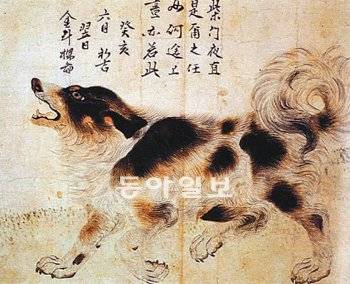 柴門夜直
是爾之任
如何途上
晝亦若此
癸亥
六月初吉
翌日
金斗樑圖
동아일보